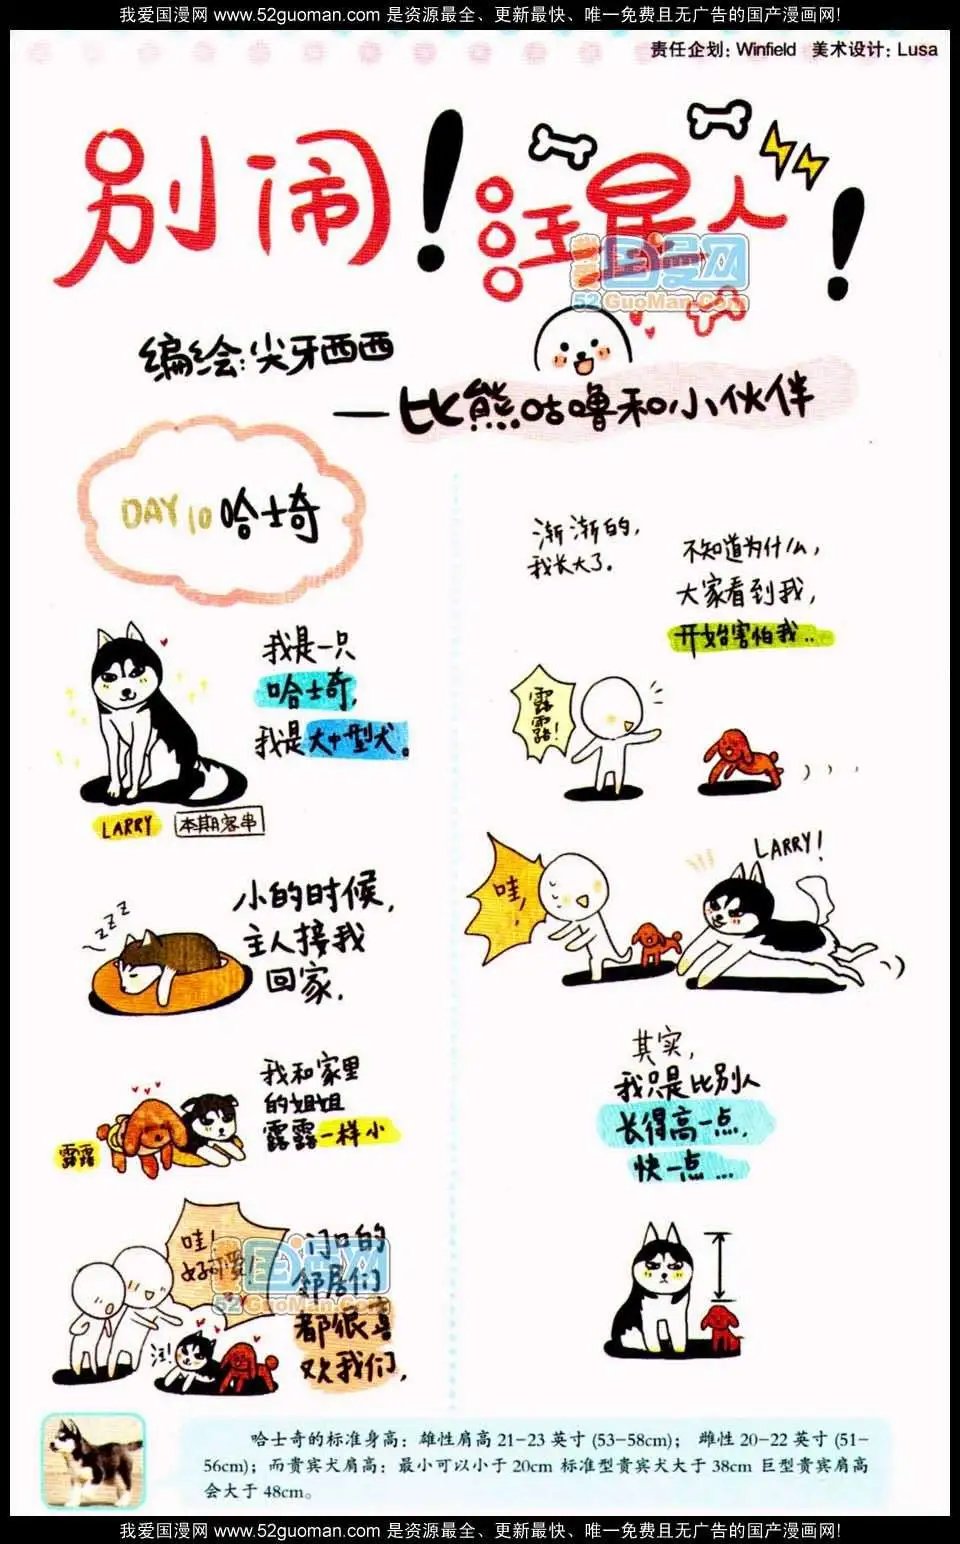 我爱国漫网 www.52guoman.com 是资源最全、更新最快、唯一免费且无广告的国产漫画网!
责任企划: Winfield 美术设计: Lusa
别闹！汪星人！
国漫网
52 GuoMan.Com
编绘:尖牙西西
—比熊咕噜和小伙伴
DAY 10 哈士奇
我是一只
哈士奇,
我是大中型犬。
LARRY 本期客串
zzz
小的时候,
主人接我
回家.
我和家里
的姐姐
露露一样小
露露
哇!
好可爱!
汪!
门口的
邻居们
都很喜
欢我们.
国漫网
52 GuoMan.Com
渐渐的,
我长大了.
不知道为什么,
大家看到我,
开始害怕我..
露露!
哇!
LARRY!
其实,
我只是比别人
长得高一点,
快一点...
哈士奇的标准身高: 雄性肩高 21-23 英寸 (53-58cm); 雌性 20-22 英寸 (51-
56cm); 而贵宾犬肩高: 最小可以小于 20cm 标准型贵宾犬大于 38cm 巨型贵宾肩高
会大于 48cm。
我爱国漫网 www.52guoman.com 是资源最全、更新最快、唯一免费且无广告的国产漫画网!